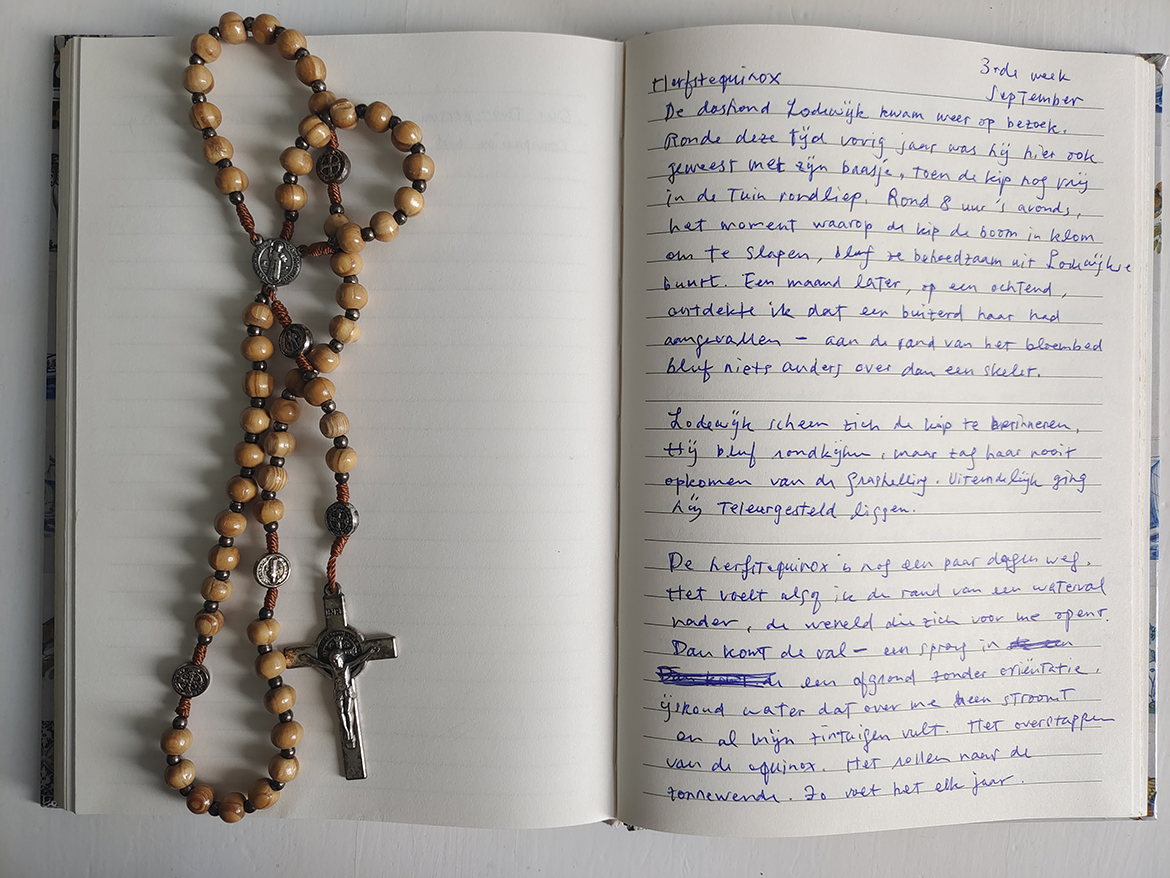 3rde week
September
Herfstequinox
De dashond Lodewijk kwam weer op bezoek.
Ronde deze tijd vorig jaar was hij hier ook
geweest met zijn baasje, toen de kip nog vrij
in de tuin rondliep. Rond 8 uur 's avonds,
het moment waarop de kip de boom in klom
om te slapen, bleef ze behoedzaam uit Lodewijks
buurt. Een maand later, op een ochtend,
ontdekte ik dat een buizerd haar had
aangevallen – aan de rand van het bloembed
bleef niets anders over dan een skelet.
Lodewijk scheen zich de kip te herinneren.
Hij bleef rondkijken, maar zag haar nooit
opkomen van de grashelling. Uiteindelijk ging
hij teleurgesteld liggen.
De herfstequinox is nog een paar dagen weg.
Het voelt alsof ik de rand van een waterval
nader, de wereld die zich voor me opent.
Dan komt de val – een sprong in
een afgrond zonder oriëntatie,
ijskoud water dat over me heen stroomt
en al mijn zintuigen vult. Het overstappen
van de equinox. Het rollen naar de
zonnewende. Zo voelt het elk jaar.